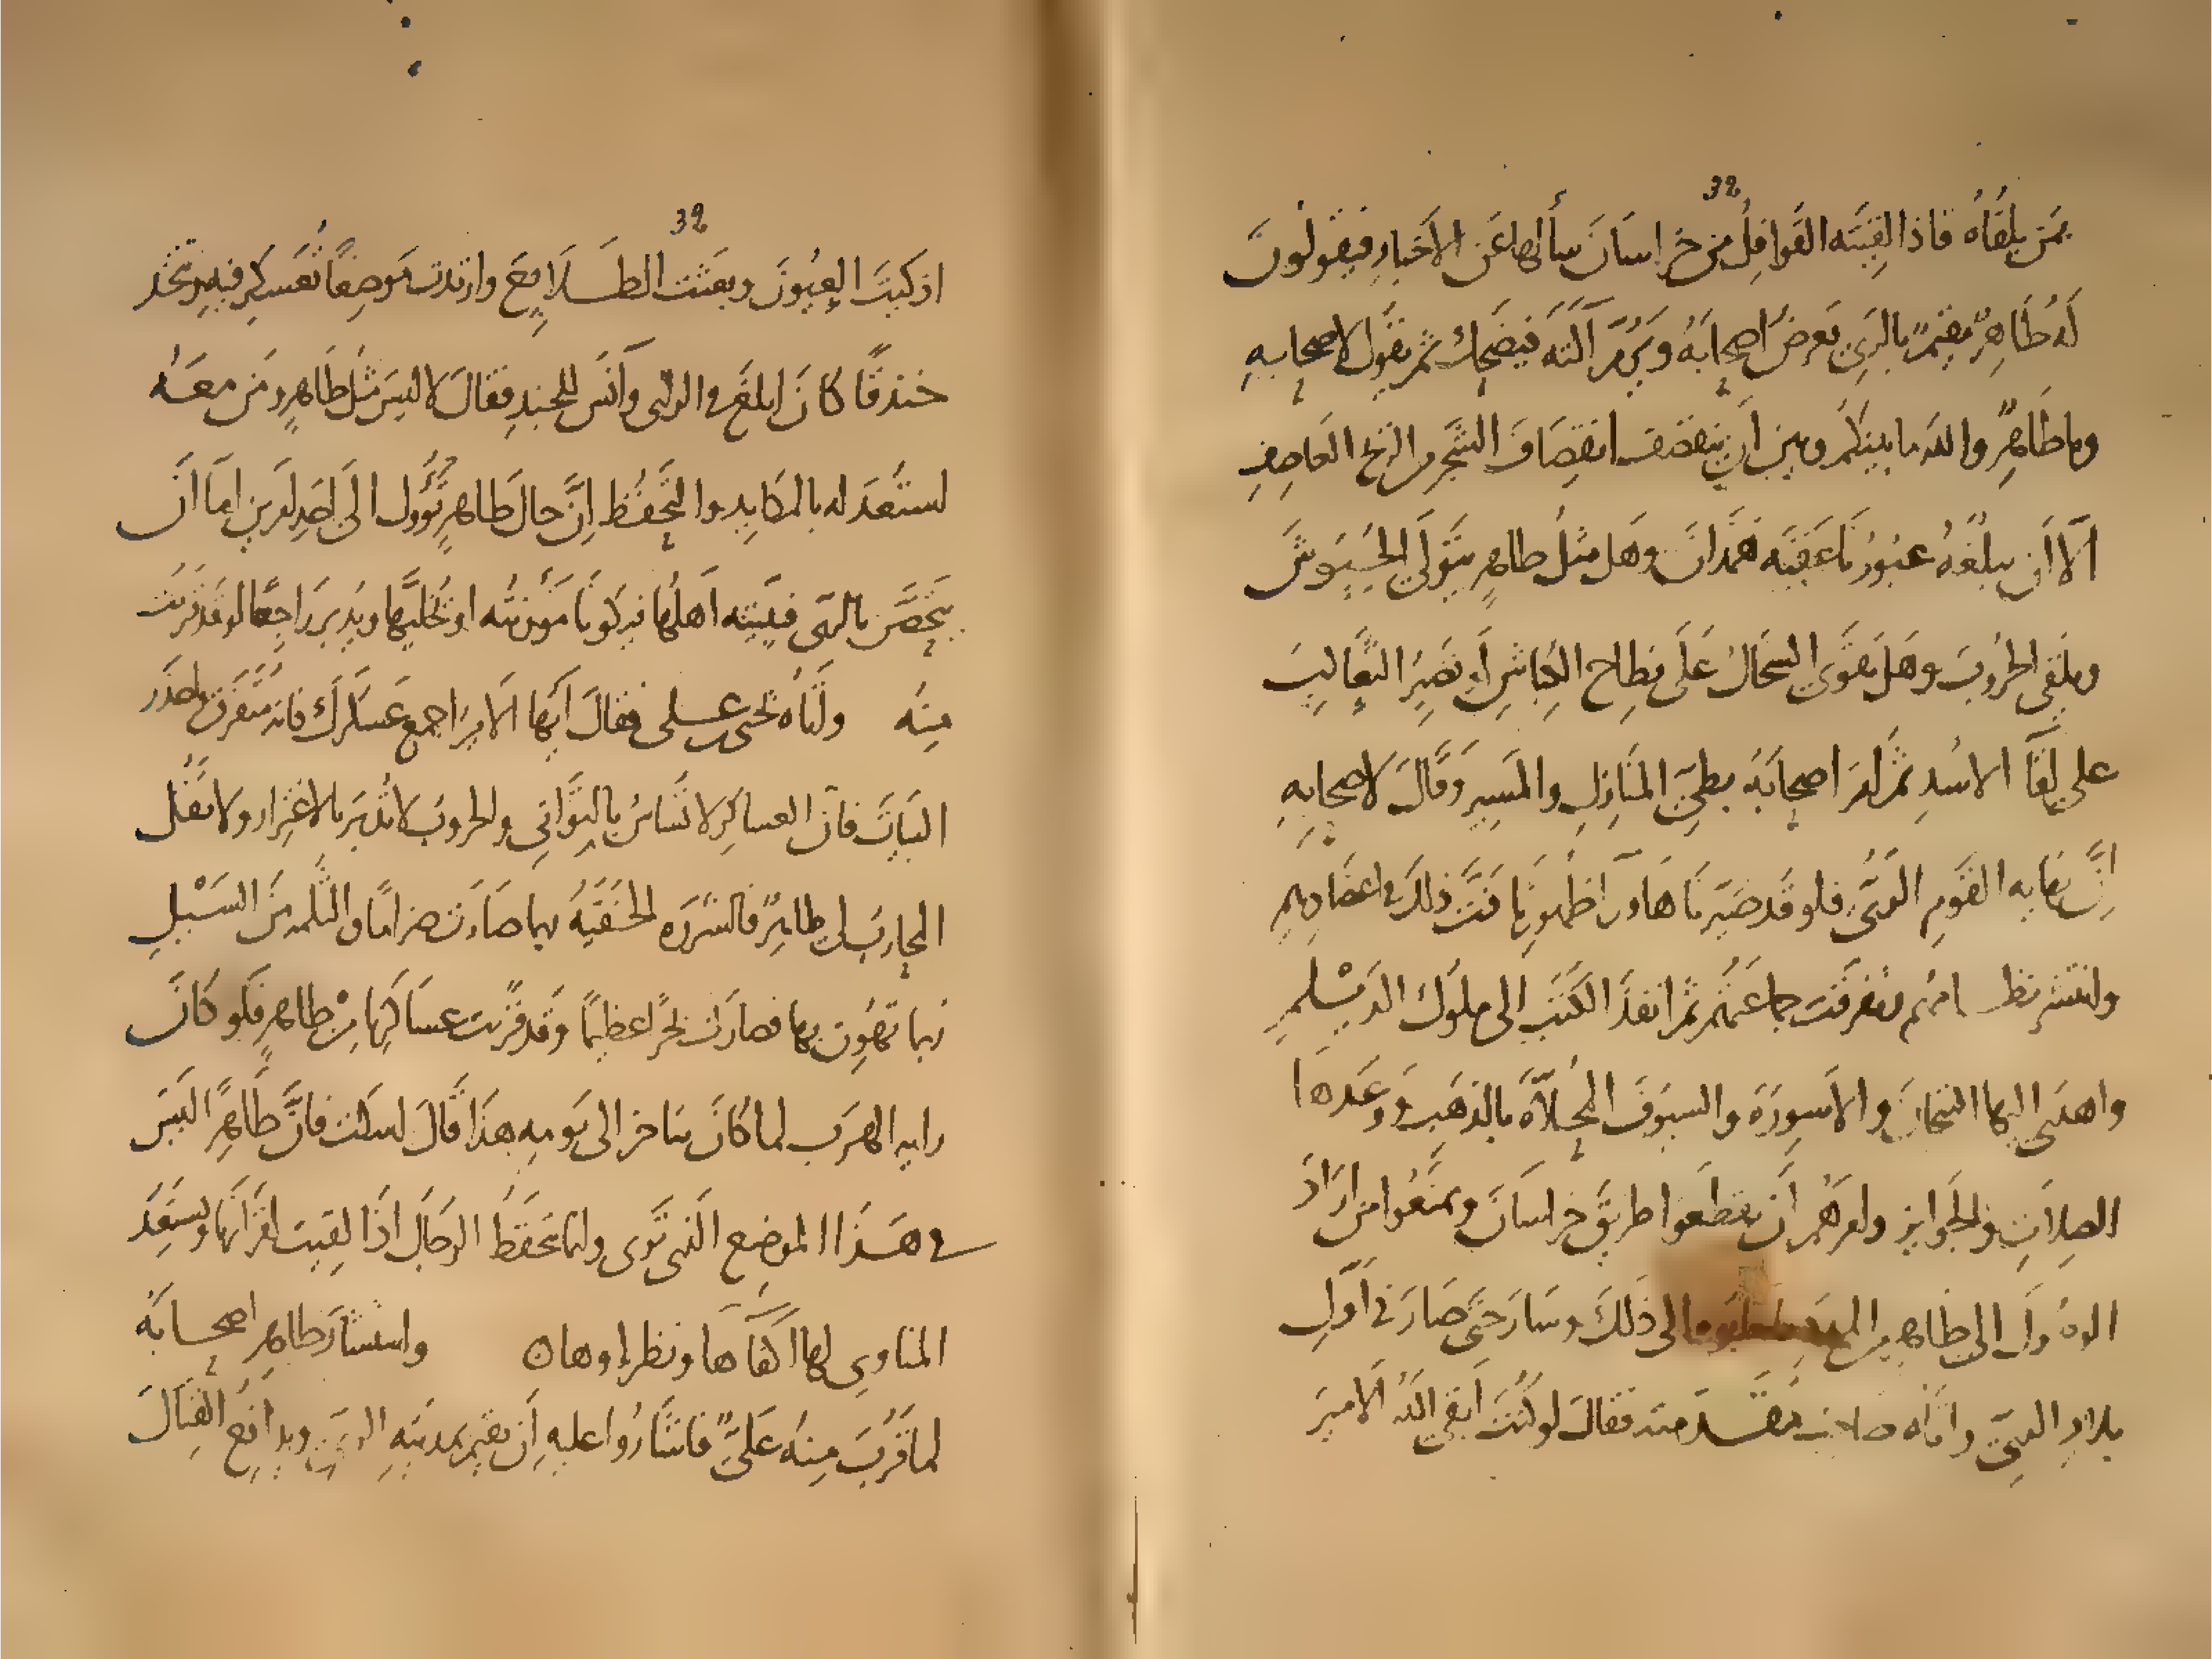 32
بمن يلقاه فاذا لقيته القوافل من خراسان سألها عن الاخبار فيقولون
له طاهر مقيم بالري يعرض اصحابه ويرم آلته فيضحك ثم يقول لاصحابه
وما طاهر والله ما بينكم وبين ان ينقصف انقصاف الشجر من الريح العاصف
الا ان يبلغه عبورنا عقبه همدان وهل مثل طاهر يتولى الجيوش
ويلقى الحروب وهل تقوى السخال على نطاح الكباش او تصبر الثعالب
على لقا الاسد ثم امر اصحابه بطي المنازل والمسير وقال لاصحابه
ان نهايه القوم الري فلو قد صيرناها ورا ظهورنا فت ذلك في اعضادهم
وانتشر نظامهم وتفرقت جماعتهم ثم انفذ الكتب الى ملوك الديلم
واهدى اليها التيجان والاسورة والسيوف المحلاة بالذهب ووعدها
الصلات والجوايز وامرهم ان يقطعوا طريق خراسان ويمنعوا من اراد
الوصول الى طاهر من الى ذلك وسار حتى صار في اول
بلاد الري واتاه صاحب مقدمته فقال لو كنت ابقى الله الامير
32
اذكيت العيون وبعثت الطلايع وارتدت موضعا تعسكر فيه وتتخذ
خندقا كان ابلغ في الراى وآنس للجند فقال لا ليس مثل طاهر ومن معه
يستعد له بالمكايد والتحفظ ان حال طاهر تؤول الى احد امرين اما ان
يتحصن بالري فيبيته اهلها فيكفونا مؤونته او يخليها ويدبر راجعا لو قد قربت
منه واتاه يحيى بن علي فقال ايها الامير اجمع عسكرك فانه متفرق واحذر
البيات فان العساكر لا تساس بالتواني والحروب لا تدبر بالاغترار ولا تقل
المحارب لي طاهر فالشررة الخفية ربما صارت ضراما والثلمة من السيل
ربما تهون بها فصارت بحرا عظيما وقد قربت عساكرها من طاهر فلو كان
رايه الهرب لما كان يتاخر الى يومه هذا قال اسكت فان طاهرا ليس
في هذا الموضع الذي ترى وانما تحفظ الرجال اذا لقيت اقرانها وتستعد
المناوي لها اكفاها ونظراوها ن واستشار طاهر اصحابه
لما قرب منه علي فاشاروا عليه ان يقيم بمدينه الري ويدافع القتال